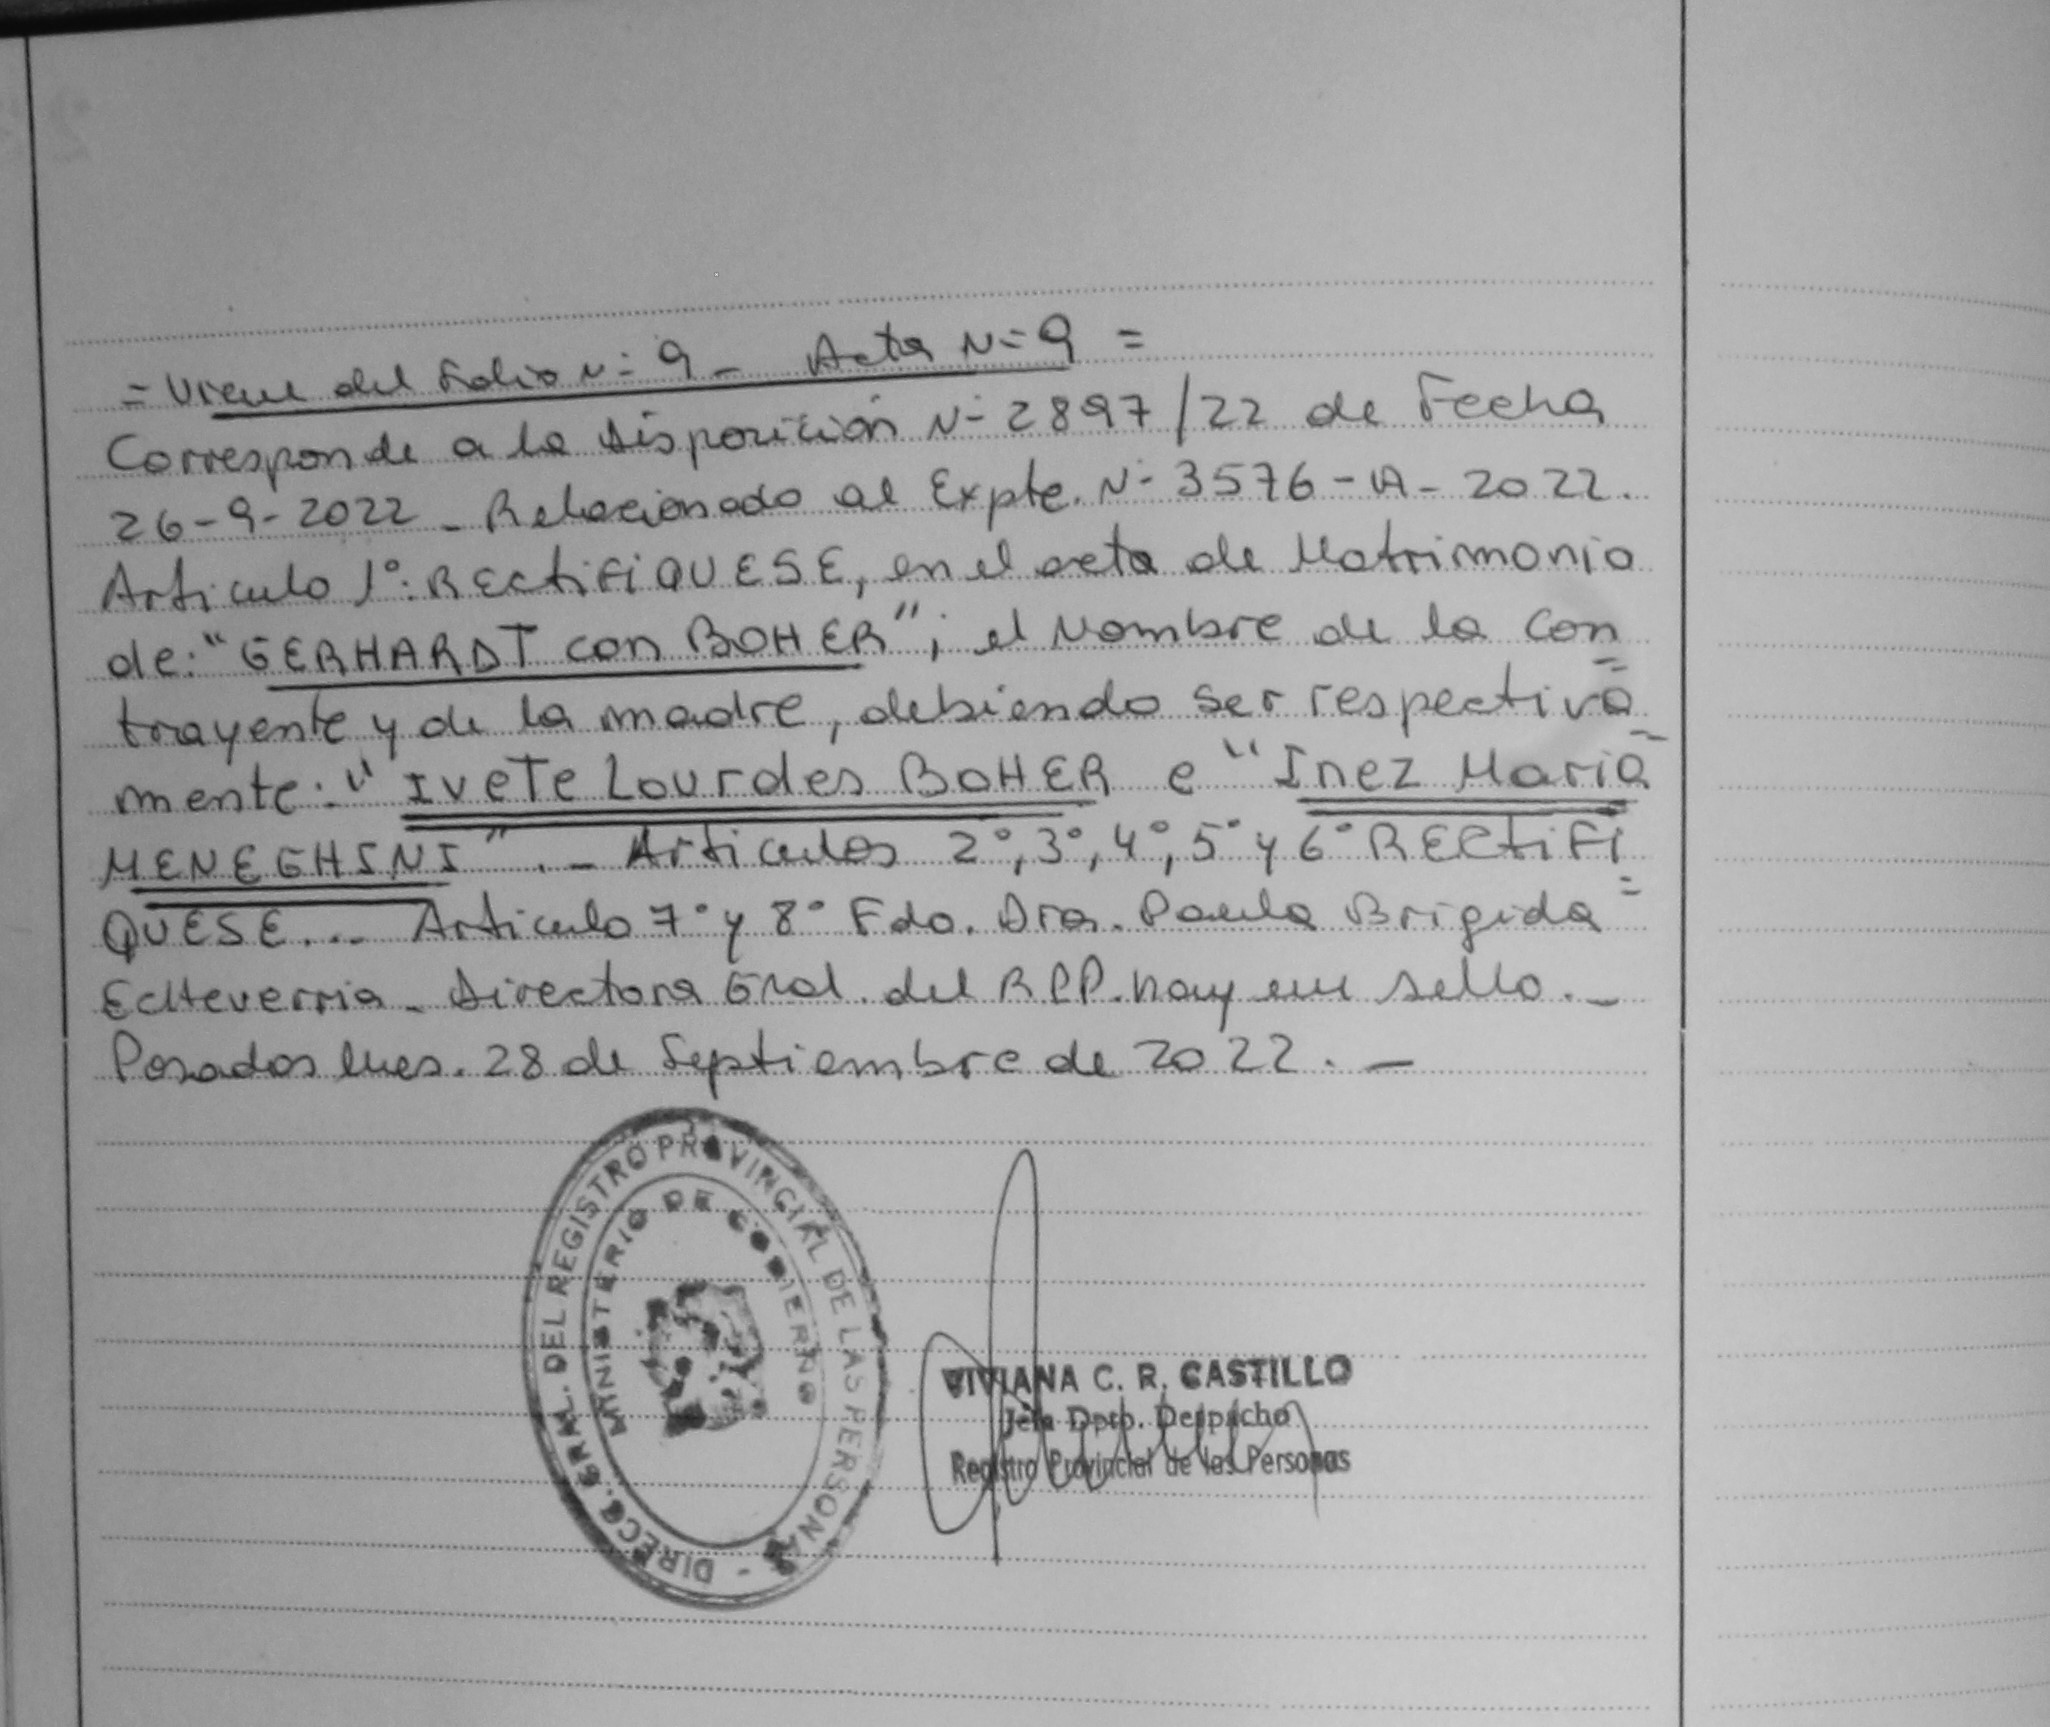 = Viene del Folio N= 9 - Acta N= 9 =
Corresponde a la Disposición N- 2897/22 de Fecha
26-9-2022 - Relacionado al Expte. N- 3576-A-2022.
Articulo 1°: RECtiFiQUESE, en el acta de Matrimonio
de: "GERHARDT con BOHER"; el Nombre de la con
=
trayente y de la madre, debiendo ser respectiva
-
mente: "Ivete Lourdes BOHER e "Inez Maria
MENEGHINI". - Articulos 2°, 3°, 4°, 5° y 6° RECtiFi
=
QUESE... Articulo 7° y 8° Fdo. Dra. Paula Brigida
Echeverria - Directora Gral. del RPP. hay un sello. -
Posadas Mnes. 28 de Septiembre de 2022. -
DIRECC. GRAL. DEL REGISTRO PROVINCIAL DE LAS PERSONAS -
MINISTERIO DE GOBIERNO
VIVIANA C. R. CASTILLO
Jefa Dpto. Despacho
Registro Provincial de las Personas